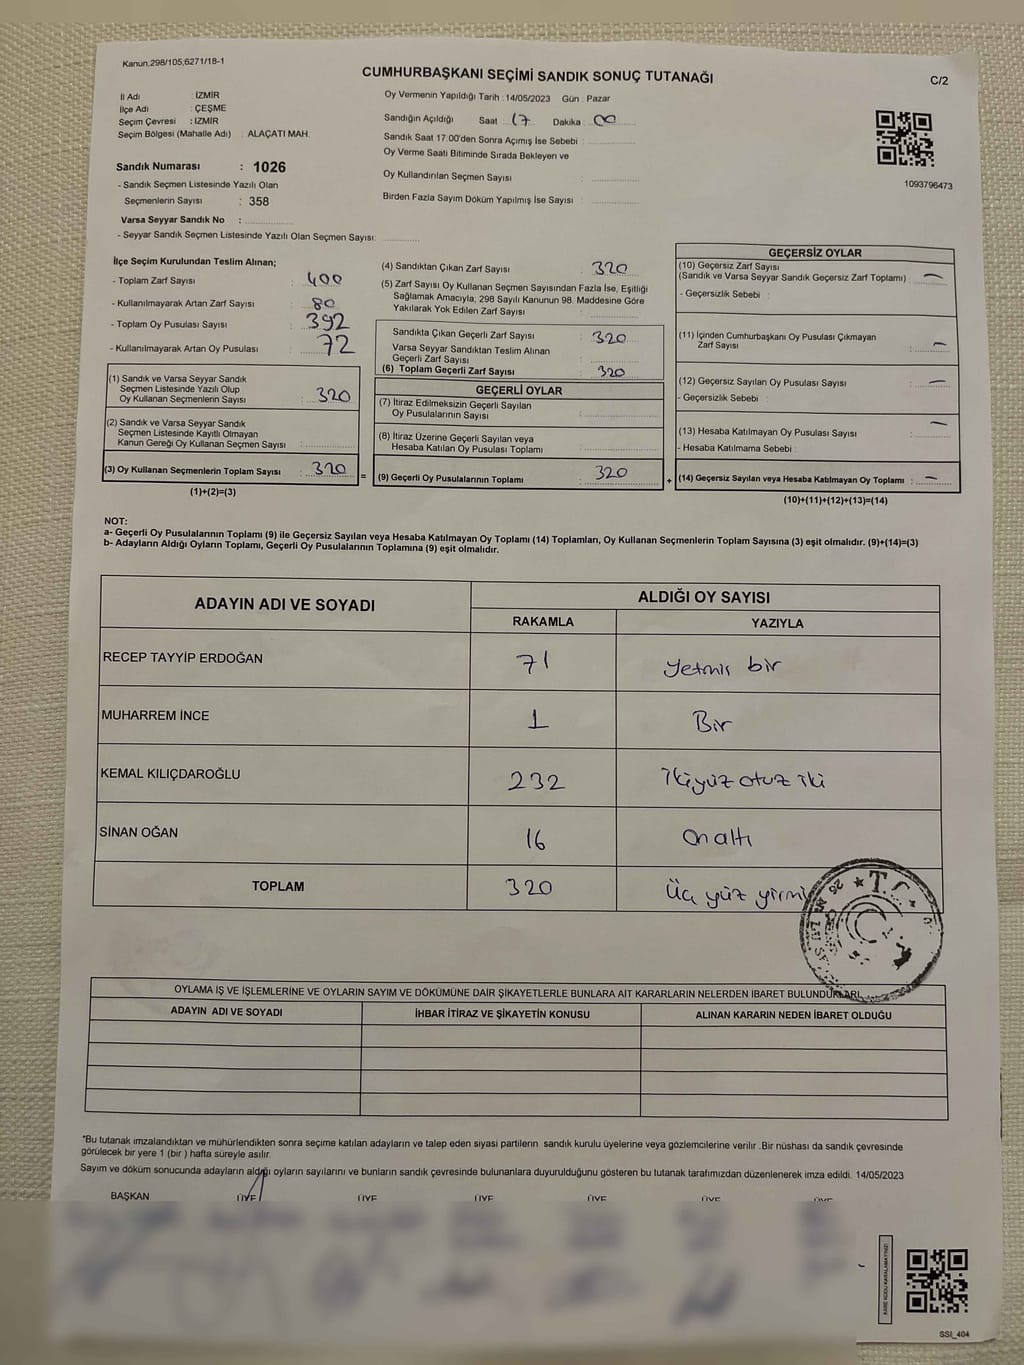 Kanun,298/105,6271/18-1
CUMHURBAŞKANI SEÇİMİ SANDIK SONUÇ TUTANAĞI
C/2
İl Adı : İZMİR
İlçe Adı : ÇEŞME
Seçim Çevresi : İZMİR
Seçim Bölgesi (Mahalle Adı) : ALAÇATI MAH.
Sandık Numarası : 1026
- Sandık Seçmen Listesinde Yazılı Olan
Seçmenlerin Sayısı : 358
Varsa Seyyar Sandık No :
- Seyyar Sandık Seçmen Listesinde Yazılı Olan Seçmen Sayısı:
Oy Vermenin Yapıldığı Tarih : 14/05/2023 Gün : Pazar
Sandığın Açıldığı Saat : 17 Dakika : 00
Sandık Saat 17:00'den Sonra Açımış İse Sebebi :
Oy Verme Saati Bitiminde Sırada Bekleyen ve
Oy Kullandırılan Seçmen Sayısı :
Birden Fazla Sayım Döküm Yapılmış İse Sayısı :
1093796473
İlçe Seçim Kurulundan Teslim Alınan;
- Toplam Zarf Sayısı : 400
- Kullanılmayarak Artan Zarf Sayısı : 80
- Toplam Oy Pusulası Sayısı : 392
- Kullanılmayarak Artan Oy Pusulası : 72
(1) Sandık ve Varsa Seyyar Sandık
Seçmen Listesinde Yazılı Olup
Oy Kullanan Seçmenlerin Sayısı : 320
(2) Sandık ve Varsa Seyyar Sandık
Seçmen Listesinde Kayıtlı Olmayan
Kanun Gereği Oy Kullanan Seçmen Sayısı :
(3) Oy Kullanan Seçmenlerin Toplam Sayısı : 320
(1)+(2)=(3)
(4) Sandıktan Çıkan Zarf Sayısı : 320
(5) Zarf Sayısı Oy Kullanan Seçmen Sayısından Fazla İse, Eşitliği
Sağlamak Amacıyla, 298 Sayılı Kanunun 98. Maddesine Göre
Yakılarak Yok Edilen Zarf Sayısı :
Sandıkta Çıkan Geçerli Zarf Sayısı : 320
Varsa Seyyar Sandıktan Teslim Alınan
Geçerli Zarf Sayısı :
(6) Toplam Geçerli Zarf Sayısı : 320
GEÇERLİ OYLAR
(7) İtiraz Edilmeksizin Geçerli Sayılan
Oy Pusulalarının Sayısı :
(8) İtiraz Üzerine Geçerli Sayılan veya
Hesaba Katılan Oy Pusulası Toplamı :
= (9) Geçerli Oy Pusulalarının Toplamı : 320
GEÇERSİZ OYLAR
(10) Geçersiz Zarf Sayısı
(Sandık ve Varsa Seyyar Sandık Geçersiz Zarf Toplamı) : —
- Geçersizlik Sebebi :
(11) İçinden Cumhurbaşkanı Oy Pusulası Çıkmayan
Zarf Sayısı : —
(12) Geçersiz Sayılan Oy Pusulası Sayısı : —
- Geçersizlik Sebebi :
(13) Hesaba Katılmayan Oy Pusulası Sayısı : —
- Hesaba Katılmama Sebebi :
+ (14) Geçersiz Sayılan veya Hesaba Katılmayan Oy Toplamı : —
(10)+(11)+(12)+(13)=(14)
NOT:
a- Geçerli Oy Pusulalarının Toplamı (9) ile Geçersiz Sayılan veya Hesaba Katılmayan Oy Toplamı (14) Toplamları, Oy Kullanan Seçmenlerin Toplam Sayısına (3) eşit olmalıdır. (9)+(14)=(3)
b- Adayların Aldığı Oyların Toplamı, Geçerli Oy Pusulalarının Toplamına (9) eşit olmalıdır.
ADAYIN ADI VE SOYADI
ALDIĞI OY SAYISI
RAKAMLA YAZIYLA
RECEP TAYYİP ERDOĞAN 71 yetmiş bir
MUHARREM İNCE 1 Bir
KEMAL KILIÇDAROĞLU 232 ikiyüz otuz iki
SİNAN OĞAN 16 on altı
TOPLAM 320 Üç yüz yirmi
T.C.
OYLAMA İŞ VE İŞLEMLERİNE VE OYLARIN SAYIM VE DÖKÜMÜNE DAİR ŞİKAYETLERLE BUNLARA AİT KARARLARIN NELERDEN İBARET BULUNDUKLARI
ADAYIN ADI VE SOYADI İHBAR İTİRAZ VE ŞİKAYETİN KONUSU ALINAN KARARIN NEDEN İBARET OLDUĞU
"Bu tutanak imzalandıktan ve mühürlendikten sonra seçime katılan adayların ve talep eden siyasi partilerin sandık kurulu üyelerine veya gözlemcilerine verilir .Bir nüshası da sandık çevresinde
görülecek bir yere 1 (bir ) hafta süreyle asılır.
Sayım ve döküm sonucunda adayların aldığı oyların sayılarını ve bunların sandık çevresinde bulunanlara duyurulduğunu gösteren bu tutanak tarafımızdan düzenlenerek imza edildi. 14/05/2023
BAŞKAN ÜYE ÜYE ÜYE ÜYE ÜYE ÜYE
KARE KODU KARALAMAYINIZ!
SSI_404